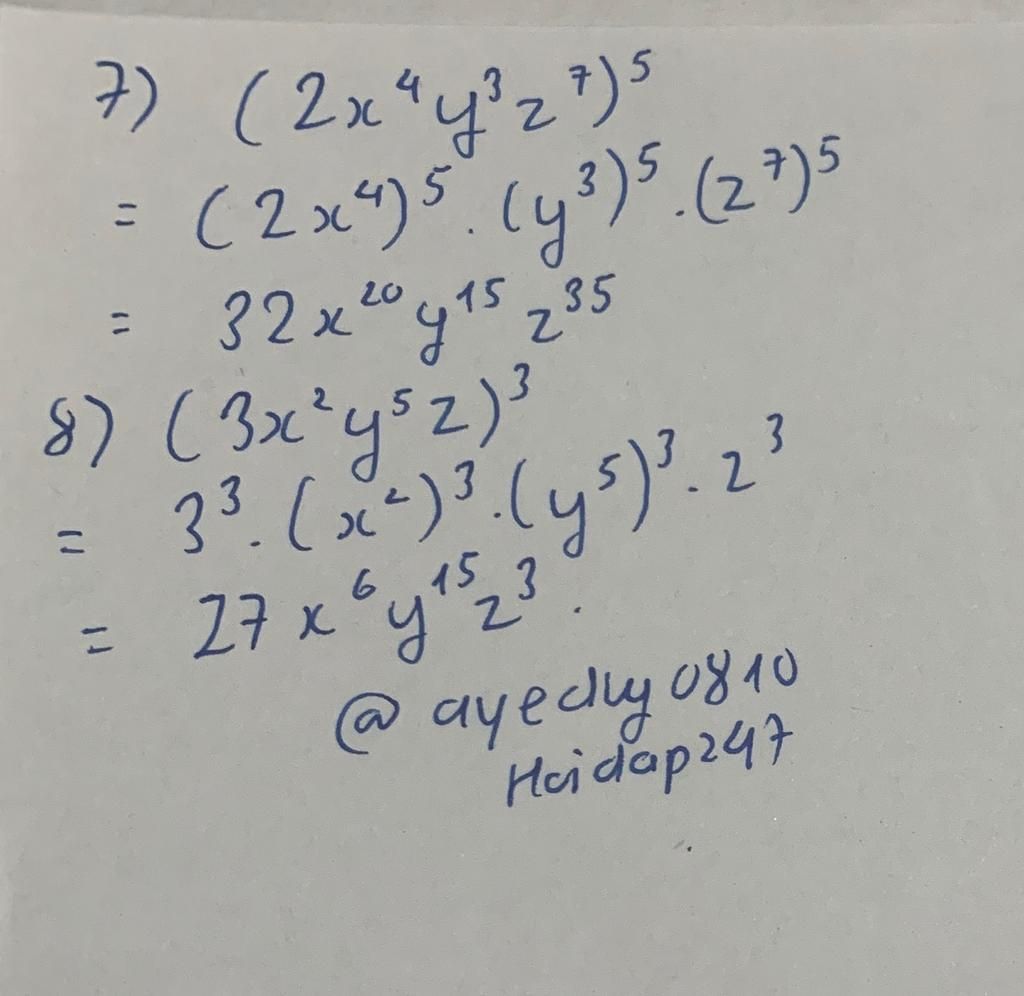 7) (2x⁴y³z⁷)⁵
= (2x⁴)⁵.(y³)⁵.(z⁷)⁵
= 32x²⁰y¹⁵z³⁵
8) (3x²y⁵z)³
= 3³.(x²)³.(y⁵)³.z³
= 27x⁶y¹⁵z³.
@ayedly0810
Hoidap247